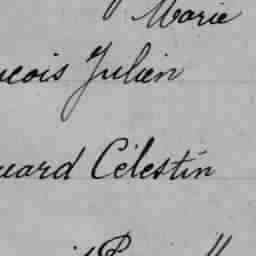 Marie
çois Julien
uard Célestin